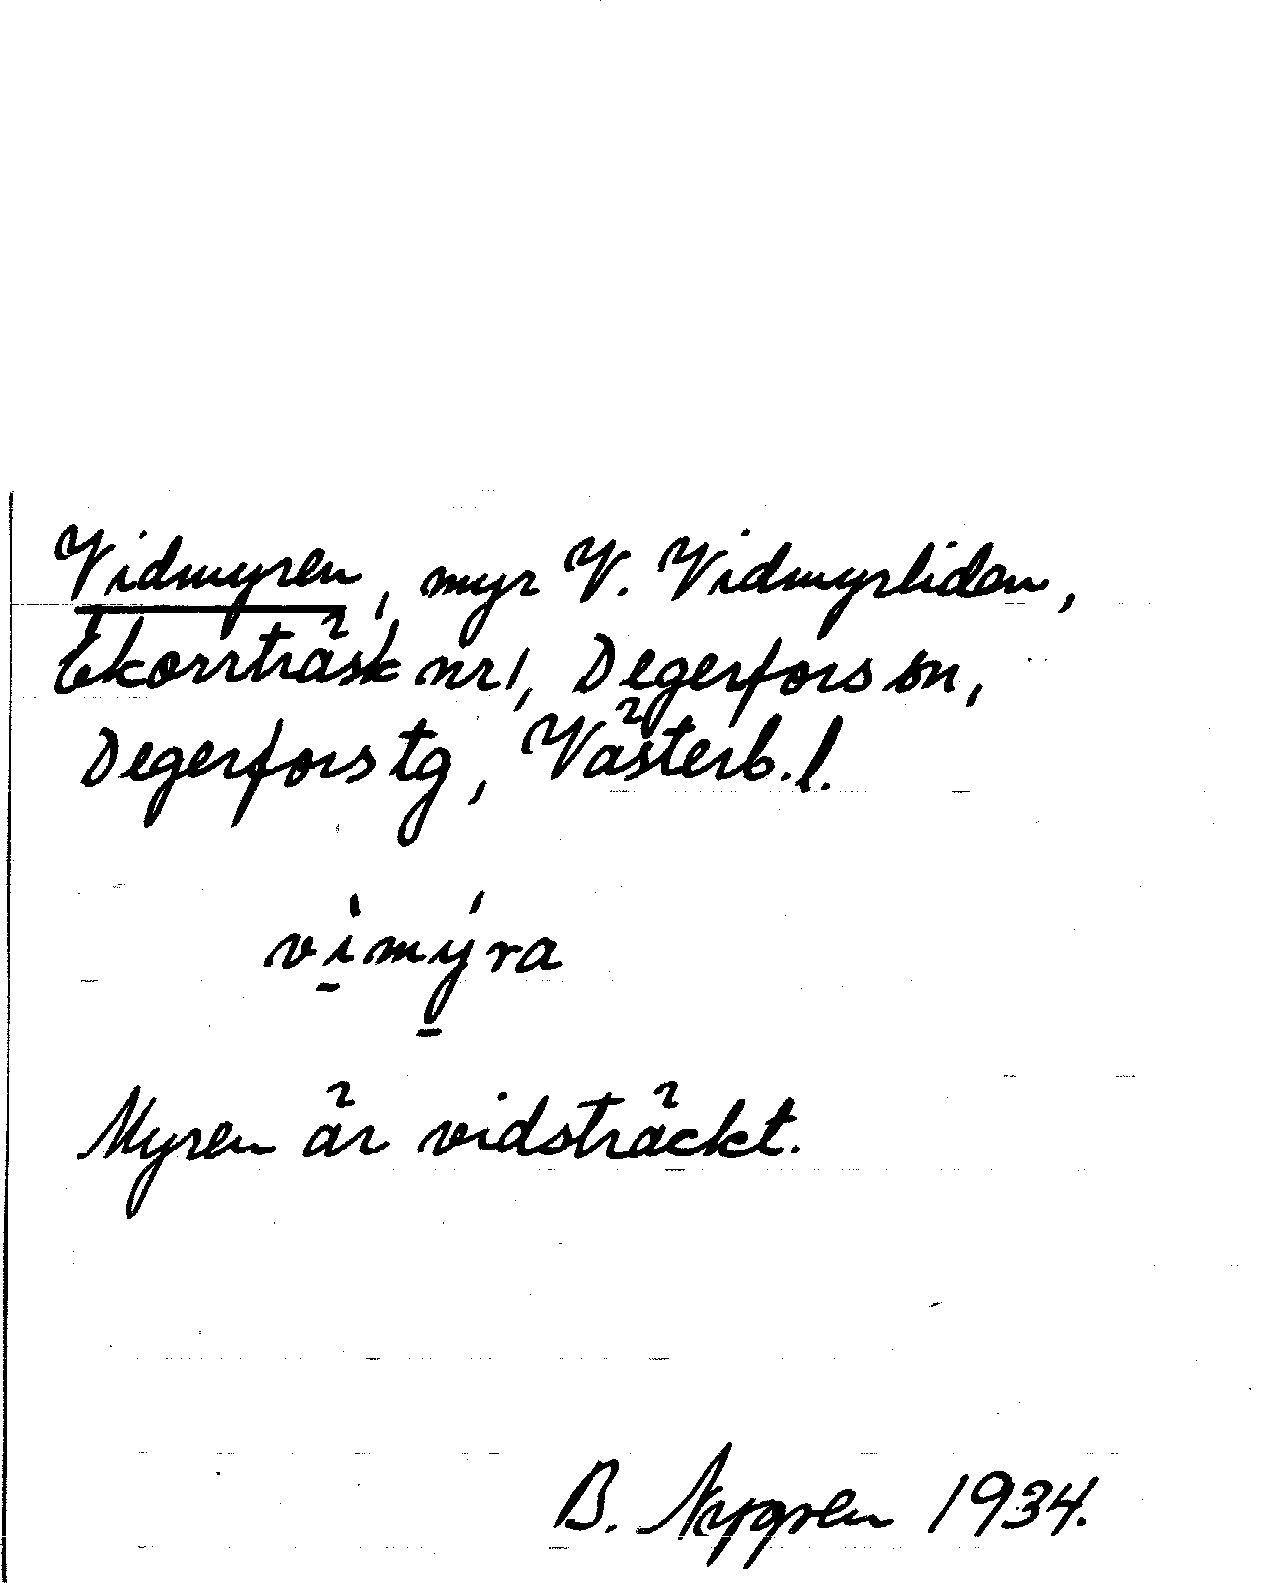 Vidmyren, myr V. Vidmyrliden,
Ekorrträsk nr 1, Degerfors sn,
Degerfors tg, Västerb. l.
vi̠mý̠ra
Myren är vidsträckt.
B. Nygren 1934.